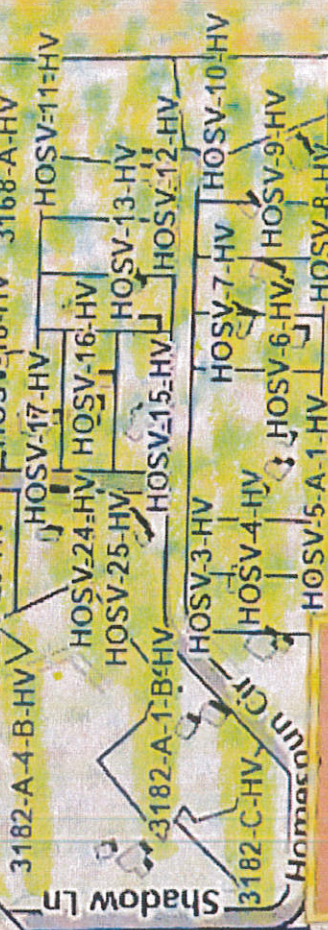 3168-A-HV
HOSV-11-HV
HOSV-10-HV
HOSV-12-HV
HOSV-13-HV
HOSV-9-HV
HOSV-8-HV
HOSV-7-HV
HOSV-16-HV
HOSV-6-HV
HOSV-17-HV
HOSV-15-HV
HOSV-24-HV
HOSV-25-HV
HOSV-3-HV
HOSV-4-HV
HOSV-5-A-1-HV
3182-A-4-B-HV
3182-A-1-B-HV
3182-C-HV
Homespun Cir
Shadow Ln